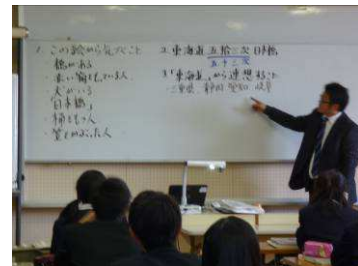 1. この絵から気づくこと
・橋がある
・赤い箱をもっている人
・犬がいる
・「日本橋」
・棒をもつ人
・笠をかぶった人
2. 東海道 五拾三次 日本橋
五十三次
3. 「東海道」から連想すること
・三重県、静岡 愛知 岐阜